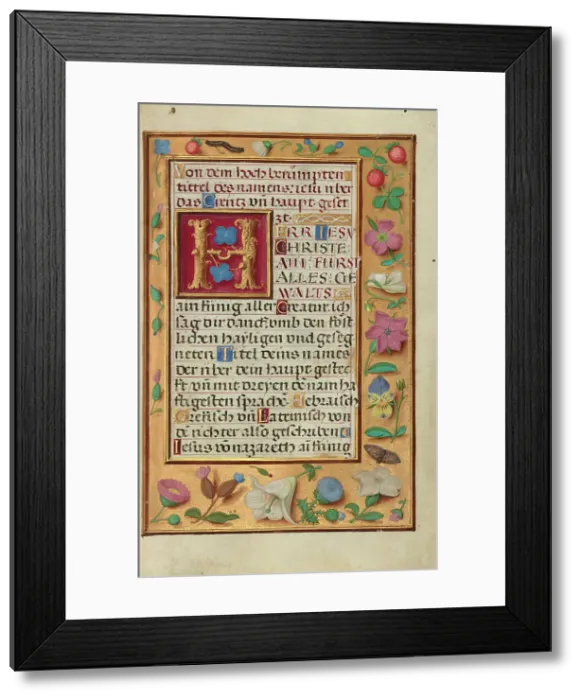 Von dem hoch berümpten
tittel des namens: iesu n ber
das Creütz vn̄ haupt geset
zt
HERR IESV
CHRISTE
AIN FVRST
ALLES: GE
WALTS
ain künig aller Creatur. ich
sag dir danck vmb den köst
lichen hayligen vnd geseg
neten Titel deins names
der v̈ber dein haupt gesteck
ft vn̄ mit dreyen dē nam ha
fftigesten sprache. Hebraisch
Grekisch vn̄ Lateinisch von
dē richter also geschriben
Iesus vō nazareth ain künig